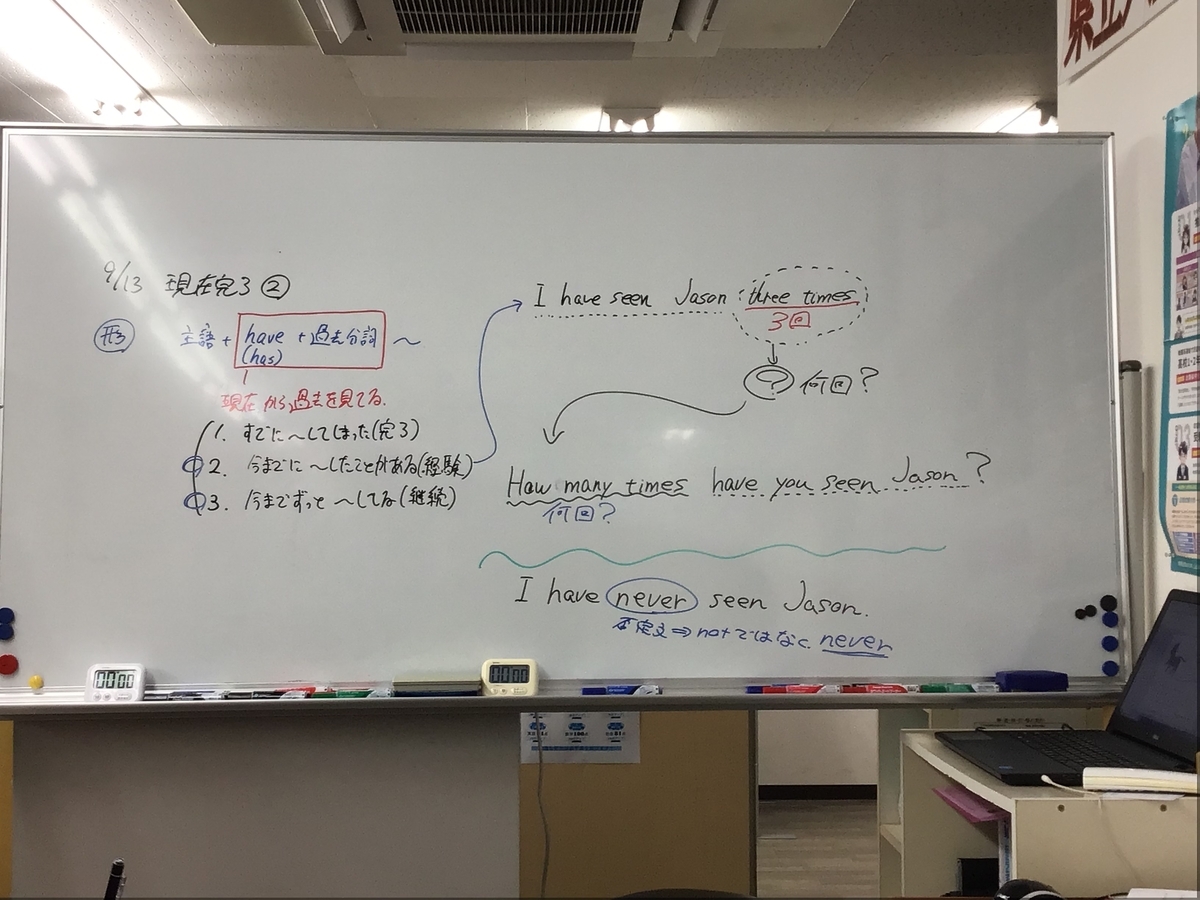 9/13 現在完了②
形 主語 + have + 過去分詞 ～
(has)
現在から過去を見てる.
1. すでに～してしまった(完了)
2. 今までに～したことがある(経験)
3. 今までずっと～してる(継続)
I have seen Jason three times
3回
? 何回?
How many times have you seen Jason?
何回?
I have never seen Jason.
否定文⇒notではなく never
県立